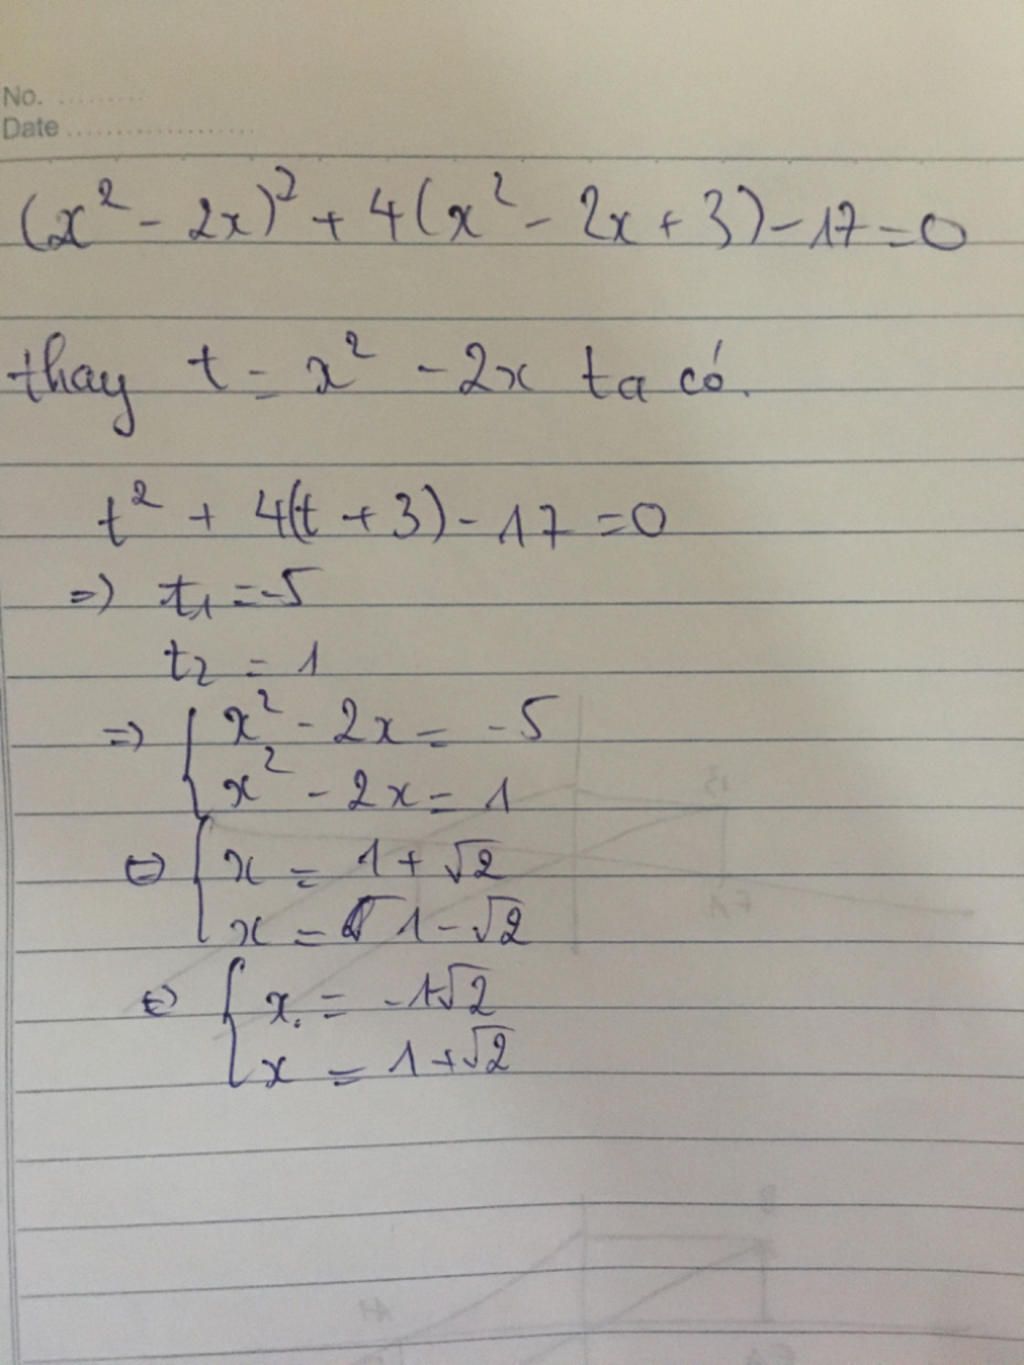 No. ..........
Date ....................
(x² - 2x)² + 4(x² - 2x + 3) - 17 = 0
thay t = x² - 2x ta có.
t² + 4(t + 3) - 17 = 0
=) t₁ = -5
t₂ = 1
=) { x² - 2x = -5
x² - 2x = 1
⇔ { x = 1 + √2
x = 1 - √2
⇔ { x. = -1√2
x = 1 + √2